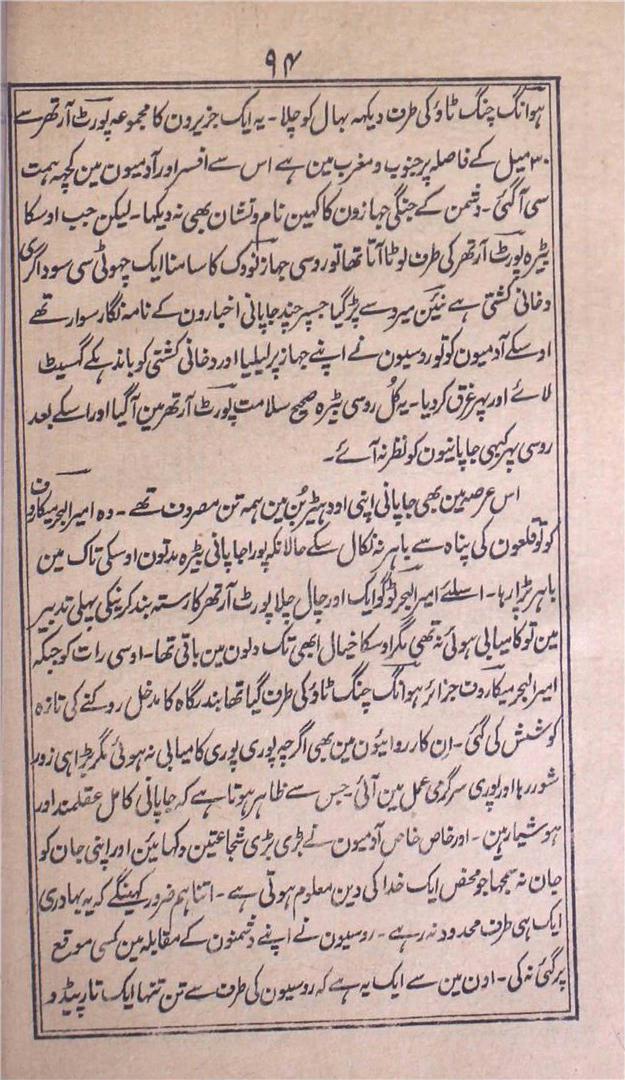 ۹۴
ہوانگ چنگ ٹاؤ کی طرف دیکہہ بہال کو چلا۔ یہ ایک جزیرون کا مجموعہ پورٹ آرتھر سے
۳۰ میل کے فاصلہ پر جنوب و مغرب مین ہے اس سے افسر اور آدمیون مین کچہہ ہمت
سی آگئی۔ دشمن کے جنگی جہازون کا کہین نام و نشان بھی نہ دیکہا۔ لیکن جب اوسکا
بیڑہ پورٹ آرتھر کی طرف لوٹا آتا تھا تو روسی جہاز نووک کا سامنا ایک چھوٹی سی سوداگری
دخانی کشتی ہے نیئن میرو سے پڑ گیا جسپر چند جاپانی اخبارون کے نامہ نگار سوار تھے
اوسکے آدمیون کو تو روسیون نے اپنے جہاز پر لیلیا اور دخانی کشتی کو باندہکے گھسیٹ
لائے اور پہر غرق کر دیا۔ یہ کل روسی بیڑہ صحیح سلامت پورٹ آرتھر مین آگیا اور اسکے بعد
روسی پہر کبھی جاپانیون کو نظر نہ آئے۔
اس عرصہ مین بھی جاپانی اپنی اودہیڑبُن مین ہمہ تن مصروف تھے۔ وہ امیر البحر میکاروف
کو تو قلعون کی پناہ سے باہر نہ نکال سکے حالانکہ پورا جاپانی بیڑہ مدتون اوسکی تاک مین
باہر پڑا رہا۔ اسلئے امیر البحر ٹوگو ایک اور چال چلا پورٹ آرتھر کا رستہ بند کرنیکی پہلی تدبیر
مین تو کامیابی ہوئی نہ تھی مگر اوسکا خیال ابھی تک دلون مین باقی تھا۔ اوسی رات کو جبکہ
امیر البحر میکاروف جزائر ہوانگ چنگ ٹاؤ کی طرف گیا تھا بندرگاہ کا مدخل روکنے کی تازہ
کوشش کی گئی۔ اِن کارروائیون مین بھی اگرچہ پوری پوری کامیابی نہ ہوئی مگر بڑا ہی زور
شور رہا اور پوری سرگرمی عمل مین آئی۔ جس سے ظاہر ہوتا ہے کہ جاپانی کامل عقلمند اور
ہوشیار ہین۔ اور خاص خاص آدمیون نے بڑی بڑی شجاعتین دکہائین اور اپنی جان کو
جان نہ سمجہا جو محض ایک خدا کی دین معلوم ہوتی ہے۔ اتنا ہم ضرور کہینگے کہ یہ بہادری
ایک ہی طرف محدود نہ رہے۔ روسیون نے اپنے دشمنون کے مقابلہ مین کسی موقع
پر گئی نہ کی۔ اون مین سے ایک یہ ہے کہ روسیون کی طرف سے تن تنہا ایک تارپیڈو